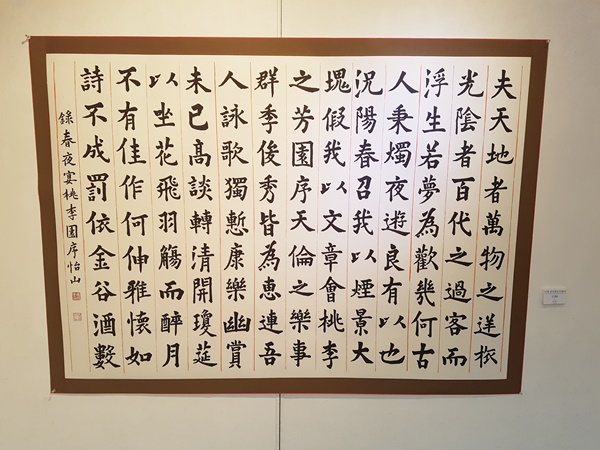 夫天地者萬物之逆旅
光陰者百代之過客而
浮生若夢為歡幾何古
人秉燭夜遊良有以也
況陽春召我以煙景大
塊假我以文章會桃李
之芳園序天倫之樂事
群季俊秀皆為恵連吾
人詠歌獨慙康樂幽賞
未已髙談轉清開瓊筵
以坐花飛羽觴而醉月
不有佳作何伸雅懷如
詩不成罰依金谷酒數
錄春夜宴桃李園序怡山